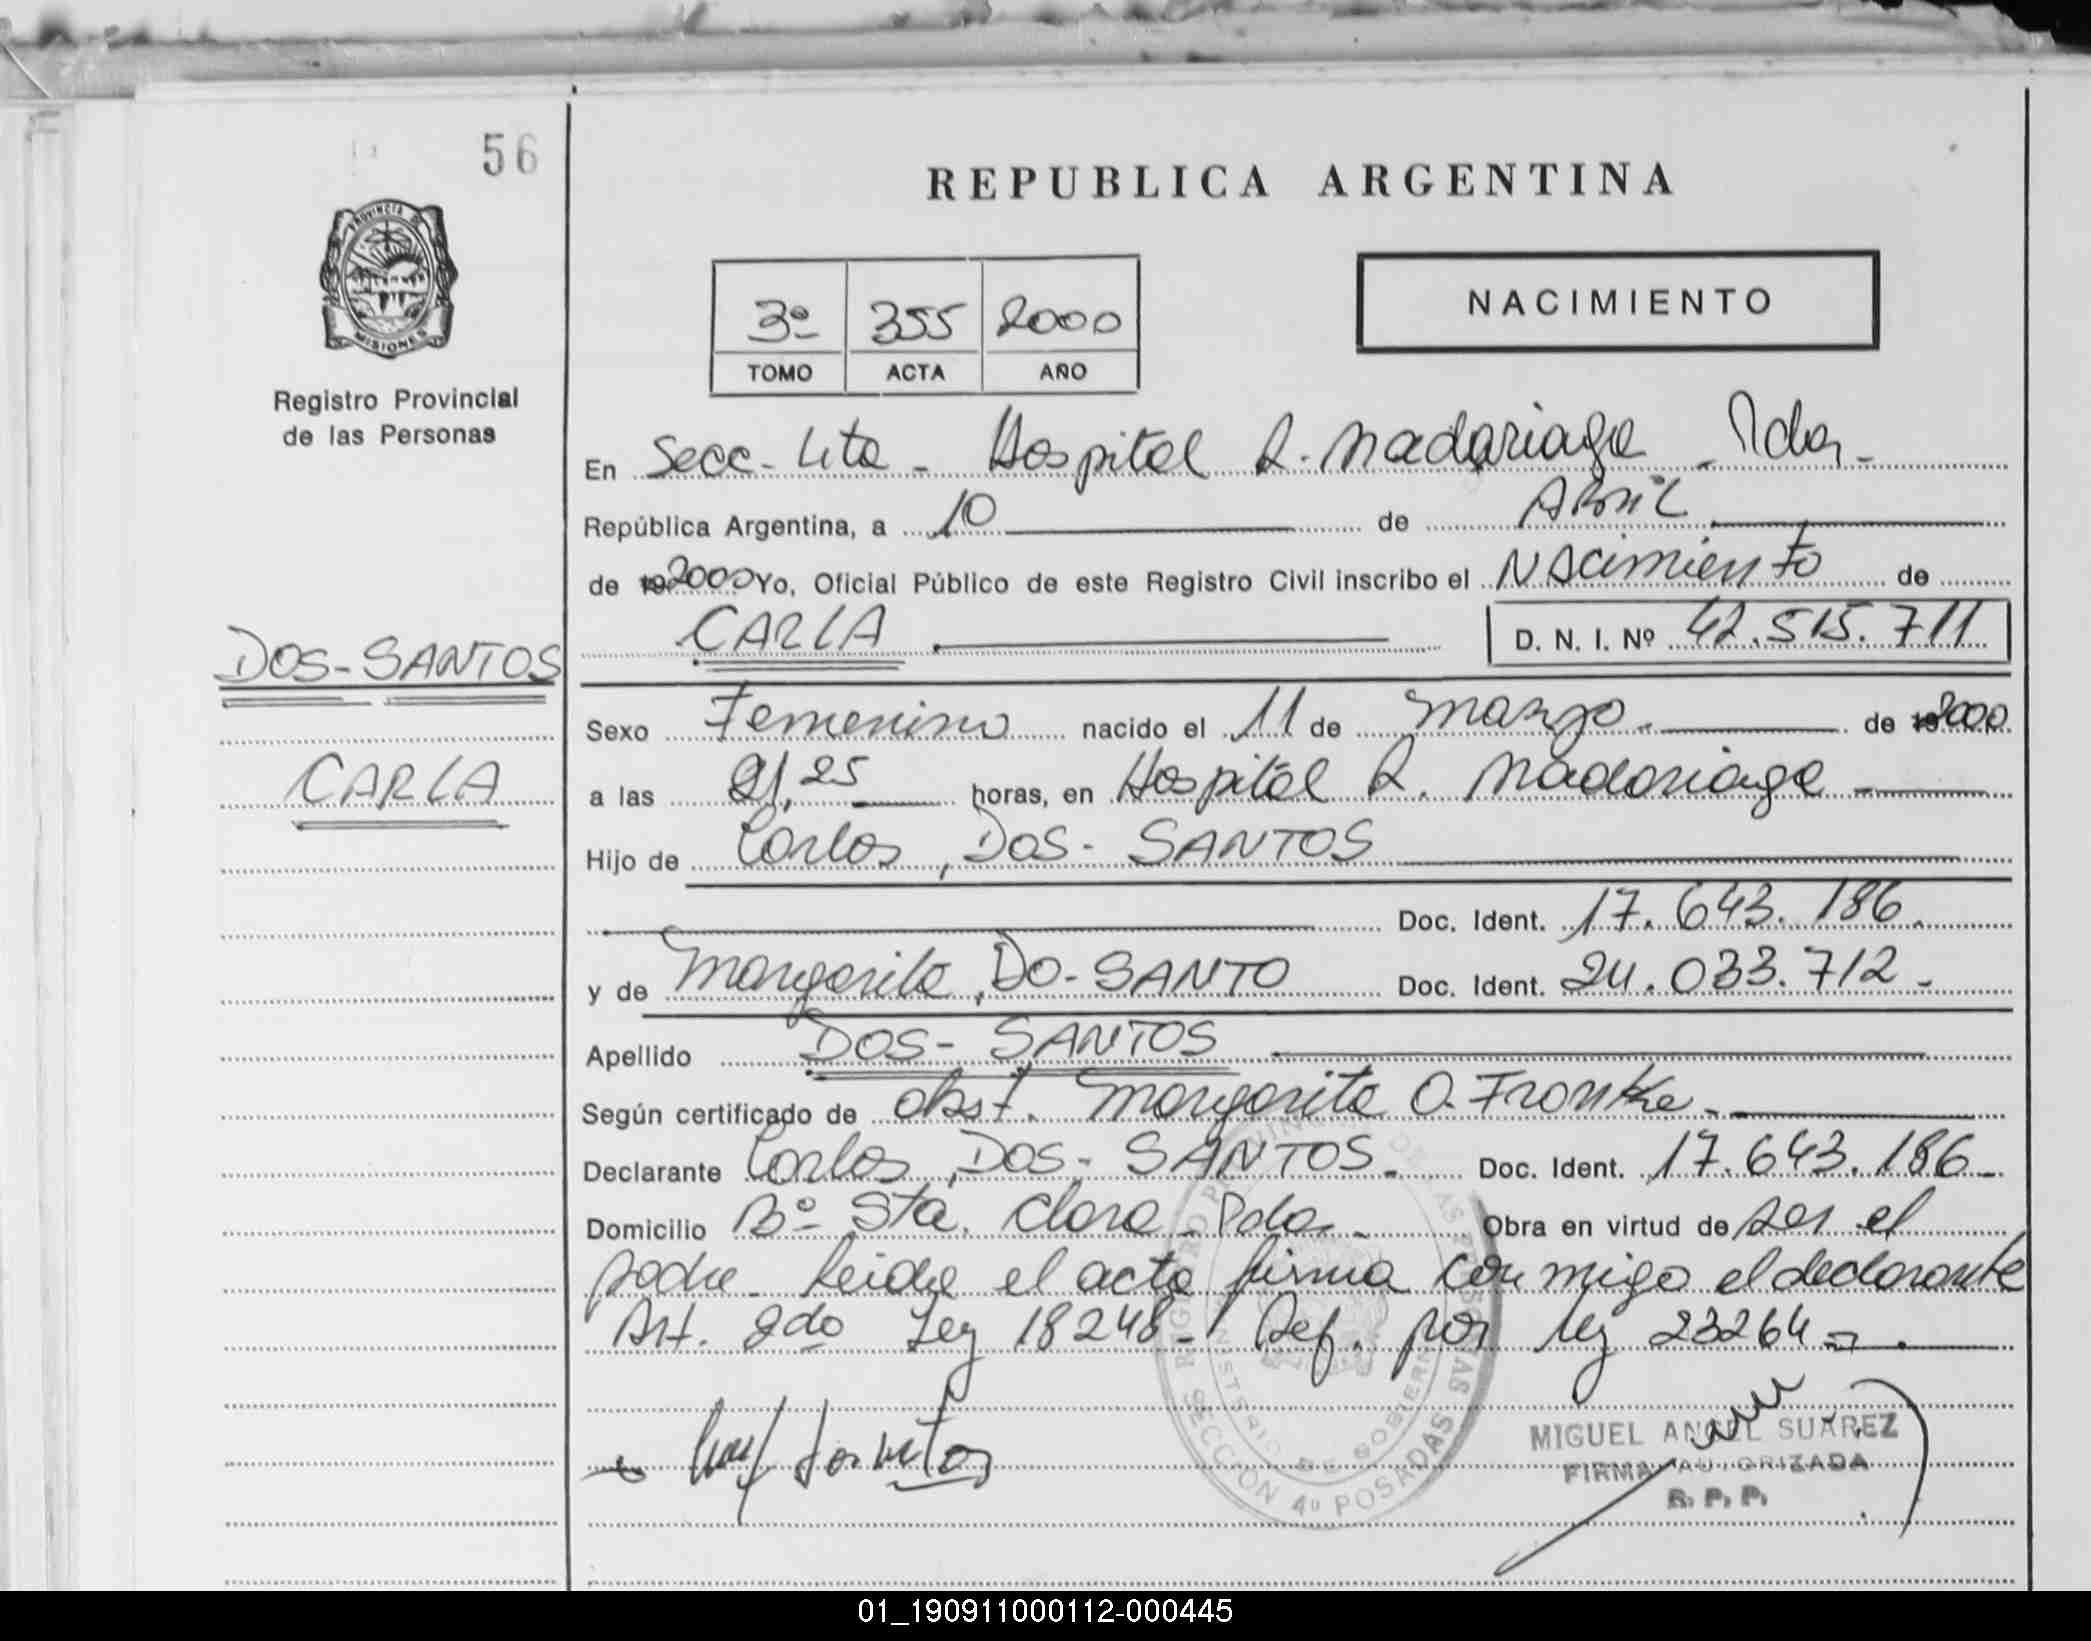 56
REPUBLICA ARGENTINA
PROVINCIA DE
MISIONES
Registro Provincial
de las Personas
3º 355 2000
TOMO ACTA AÑO
NACIMIENTO
En Secc- 4ta - Hospital R. Madariaga - Pdas -
República Argentina, a 10 de ABRIL
de 2000 Yo, Oficial Público de este Registro Civil inscribo el NACimiento de
CARLA D. N. I. Nº 42.515.711
DOS-SANTOS
CARLA
Sexo Femenino nacido el 11 de marzo. de 2000
a las 21,25 horas, en Hospital R. Madariaga -
Hijo de Carlos, DOS- SANTOS
Doc. Ident. 17.643.186.
y de Margarita, DO-SANTO Doc. Ident. 24.033.712 -
Apellido DOS- SANTOS
Según certificado de obst. Margarita O. Franke -
Declarante Carlos, DOS- SANTOS - Doc. Ident. 17.643.186 -
Domicilio Bº Sta. Clara - Pdas - Obra en virtud de ser el
padre - Leida el acta firma conmigo el declarante
Art. 2do Ley 18248 - Ref. por ley 23264 -
REGISTRO PROVINCIAL DE LAS PERSONAS
MINISTERIO DE GOBIERNO
SECCION 4º POSADAS
MIGUEL ANGEL SUAREZ
FIRMA AUTORIZADA
R. P. P.
01_190911000112-000445